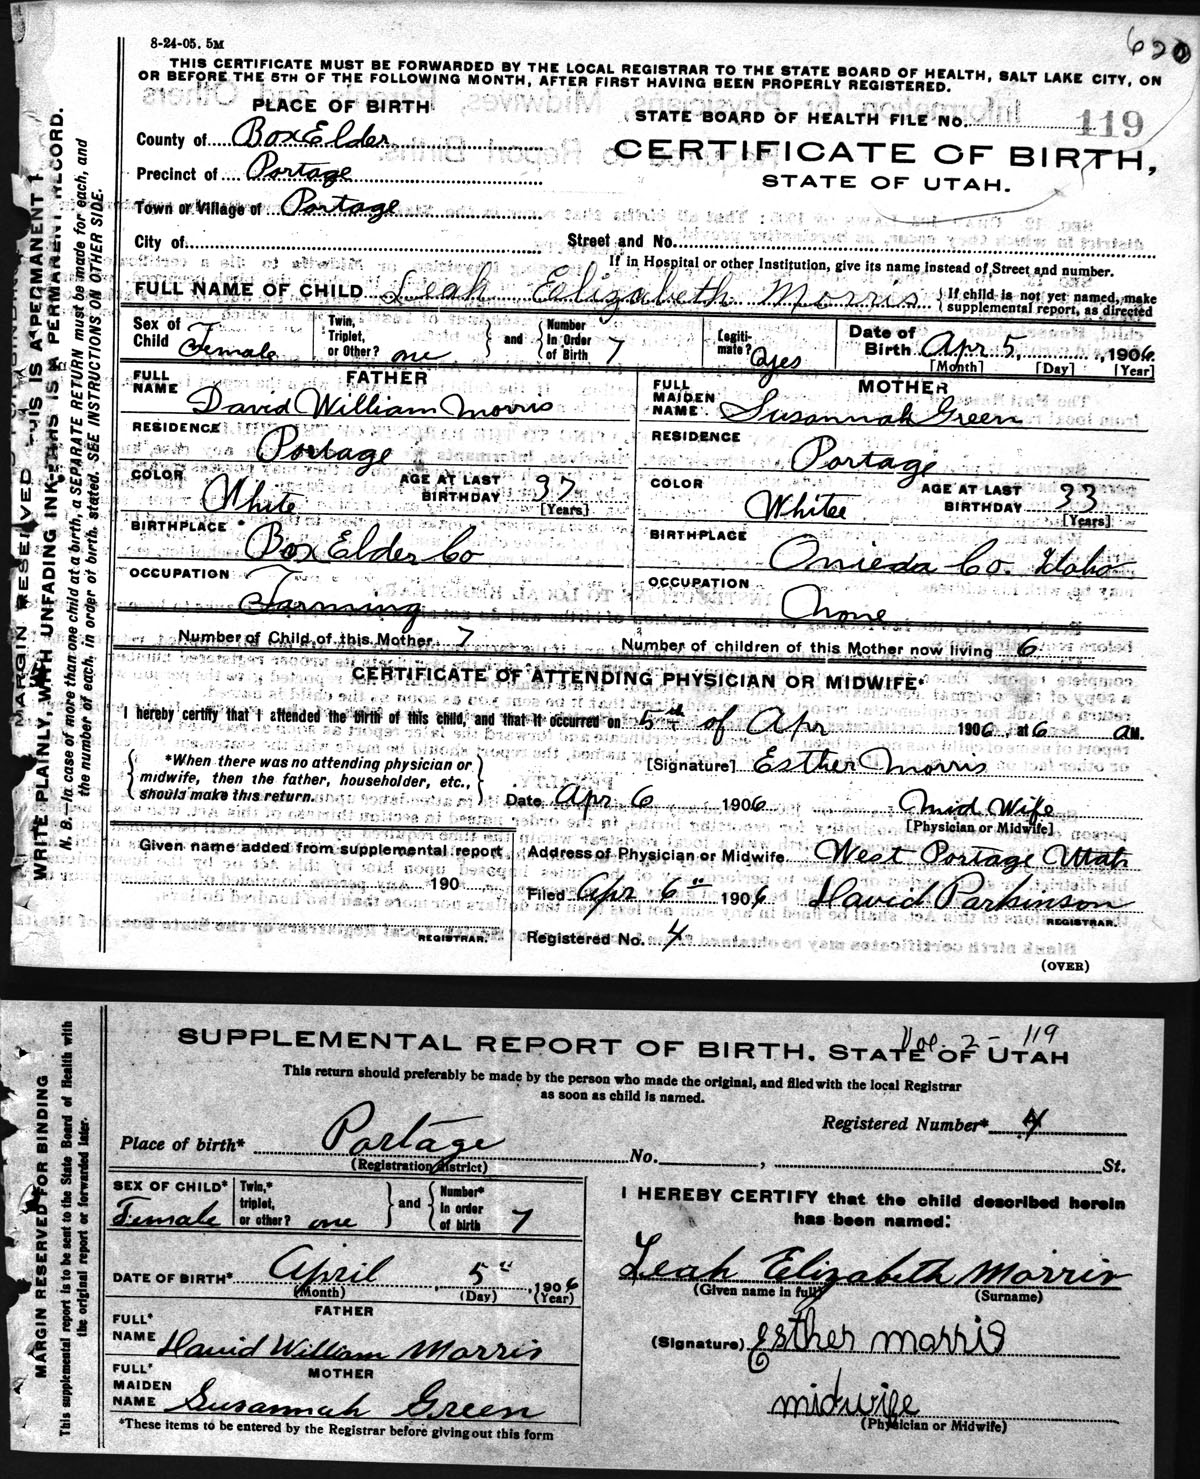 8-24-05. 5M
620
THIS CERTIFICATE MUST BE FORWARDED BY THE LOCAL REGISTRAR TO THE STATE BOARD OF HEALTH, SALT LAKE CITY, ON
OR BEFORE THE 5TH OF THE FOLLOWING MONTH, AFTER FIRST HAVING BEEN PROPERLY REGISTERED.
PLACE OF BIRTH
STATE BOARD OF HEALTH FILE NO. 119
County of Box Elder
CERTIFICATE OF BIRTH,
Precinct of Portage
STATE OF UTAH.
Town or Village of Portage
City of
Street and No.
If in Hospital or other Institution, give its name instead of Street and number.
FULL NAME OF CHILD Leah Eelizabeth Morris { If child is not yet named, make supplemental report, as directed
Sex of Child Female
Twin, Triplet, or Other? one } and { Number in Order of Birth 7
Legitimate? yes
Date of Birth Apr 5, 1906
[Month] [Day] [Year]
FATHER
FULL NAME David William Morris
RESIDENCE Portage
COLOR White
AGE AT LAST BIRTHDAY 37
[Years]
BIRTHPLACE Box Elder Co
OCCUPATION Farming
MOTHER
FULL MAIDEN NAME Susannah Green
RESIDENCE Portage
COLOR Whitee
AGE AT LAST BIRTHDAY 33
[Years]
BIRTHPLACE Onieda Co. Idaho
OCCUPATION None
Number of Child of this Mother 7
Number of children of this Mother now living 6
CERTIFICATE OF ATTENDING PHYSICIAN OR MIDWIFE*
I hereby certify that I attended the birth of this child, and that it occurred on 5th of Apr 1906, at 6 a M.
{ *When there was no attending physician or
midwife, then the father, householder, etc.,
should make this return. }
[Signature] Esther Morris
Date Apr 6 1906 Mid Wife
[Physician or Midwife]
Given name added from supplemental report
190
REGISTRAR.
Address of Physician or Midwife West Portage Utah
Filed Apr 6" 1906 David Parkinson
REGISTRAR.
Registered No. 4
(OVER)
MARGIN RESERVED
WRITE PLAINLY, WITH UNFADING INK—THIS IS A PERMANENT RECORD.
N. B.—In case of more than one child at a birth, a SEPARATE RETURN must be made for each, and
the number of each, in order of birth, stated. SEE INSTRUCTIONS ON OTHER SIDE.
Vol. 2 - 119
SUPPLEMENTAL REPORT OF BIRTH. STATE OF UTAH
This return should preferably be made by the person who made the original, and filed with the local Registrar
as soon as child is named.
Registered Number* 4
Place of birth* Portage No. , St.
(Registration district)
SEX OF CHILD* Female
Twin,* triplet, or other? one } and { Number* in order of birth 7
DATE OF BIRTH* April 5" 1906
(Month) (Day) (Year)
FATHER
FULL* NAME David William Morris
MOTHER
FULL* MAIDEN NAME Susannah Green
*These items to be entered by the Registrar before giving out this form
I HEREBY CERTIFY that the child described herein
has been named:
Leah Elizabeth Morris
(Given name in full) (Surname)
(Signature) Esther morris
midwife
(Physician or Midwife)
MARGIN RESERVED FOR BINDING
This supplemental report is to be sent to the State Board of Health with
the original report or forwarded later.